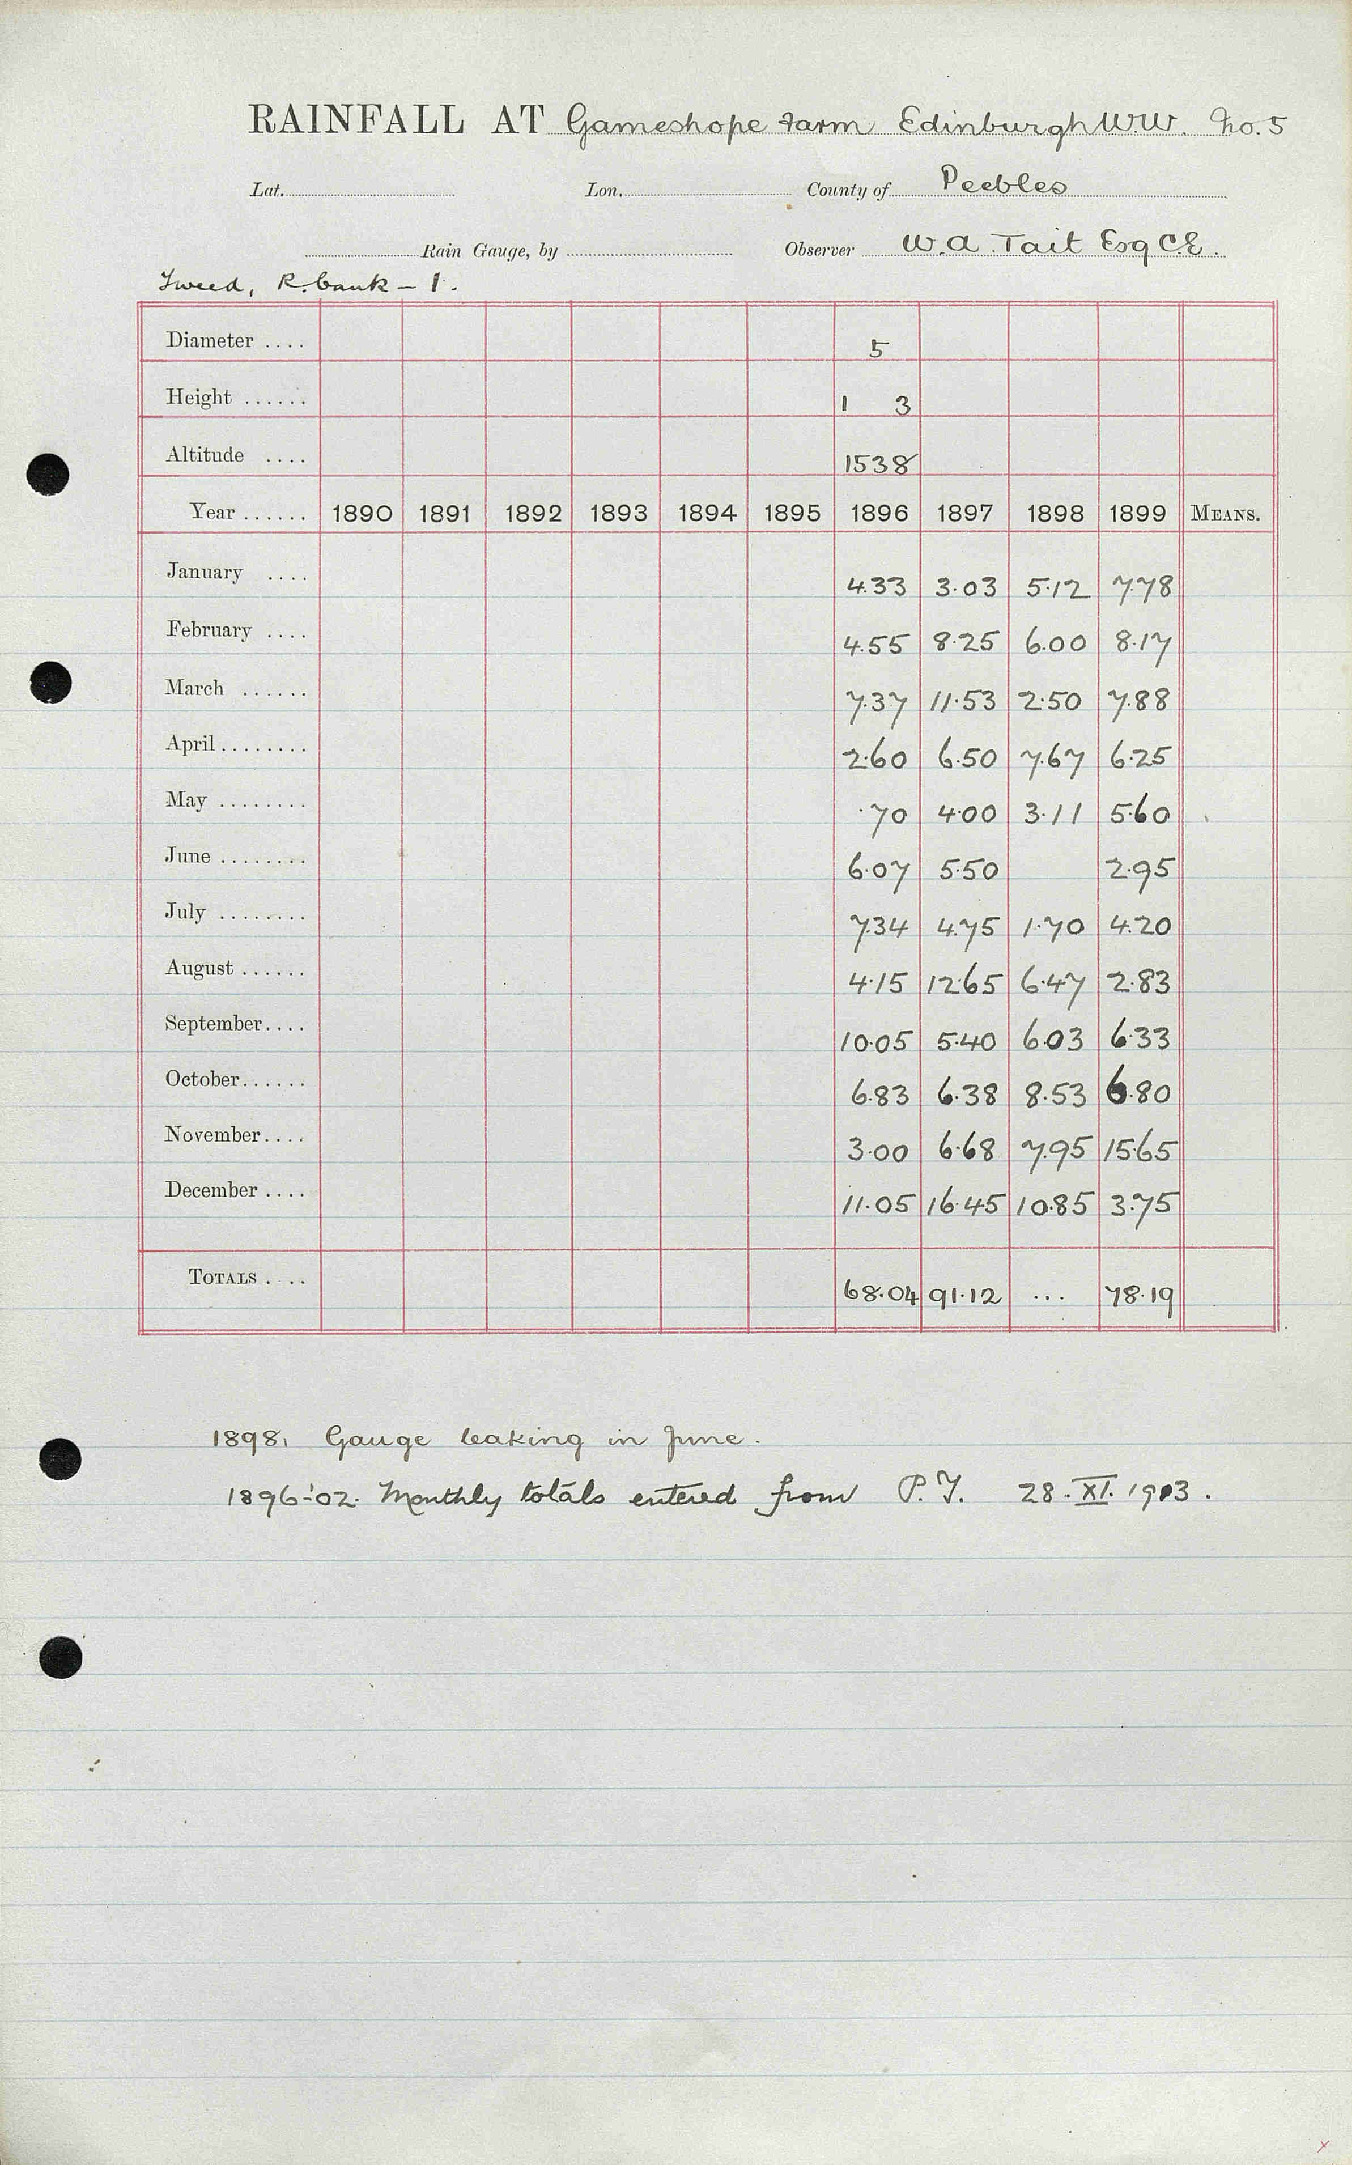 RAINFALL AT Gameshope Farm Edinburgh W.W. No. 5
Lat. Lon. County of Peebles
Rain Gauge, by Observer W.A. Tait Esq C.E.
Tweed, R. bank - 1.
Diameter .... 5
Height ...... 1 3
Altitude .... 1538
Year ...... 1890 1891 1892 1893 1894 1895 1896 1897 1898 1899 MEANS.
January .... 4.33 3.03 5.12 7.78
February .... 4.55 8.25 6.00 8.17
March ...... 7.37 11.53 2.50 7.88
April ........ 2.60 6.50 7.67 6.25
May ........ .70 4.00 3.11 5.60
June ........ 6.07 5.50 2.95
July ........ 7.34 4.75 1.70 4.20
August ...... 4.15 12.65 6.47 2.83
September.... 10.05 5.40 6.03 6.33
October...... 6.83 6.38 8.53 6.80
November.... 3.00 6.68 7.95 15.65
December .... 11.05 16.45 10.85 3.75
TOTALS .... 68.04 91.12 ... 78.19
1898. Gauge leaking in June.
1896-'02. Monthly totals entered from P.T. 28.XI.1903.